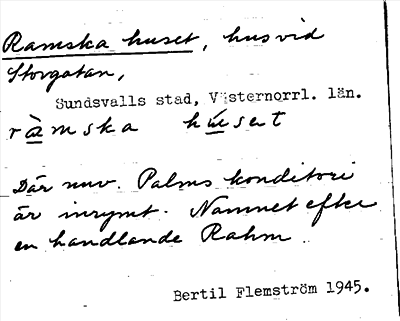 Ramska huset, hus vid
Storgatan,
Sundsvalls stad, Västernorrl. län.
ràmska húset
Där nuv. Palms konditori
är inrymt. Namnet efter
en handlande Rahm
Bertil Flemström 1945.